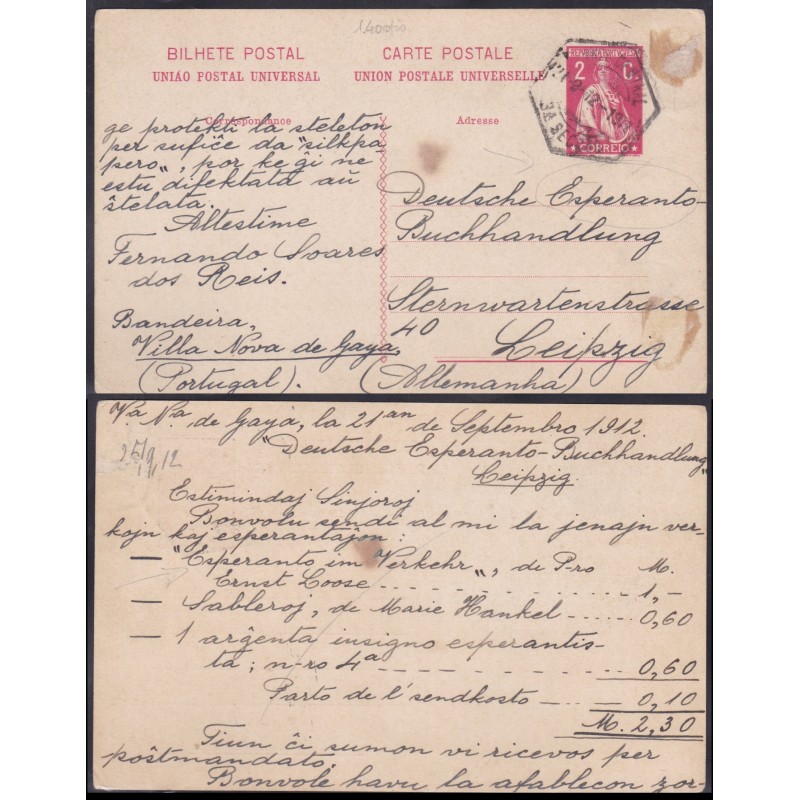 1400tio
BILHETE POSTAL
UNIÃO POSTAL UNIVERSAL
CARTE POSTALE
UNION POSTALE UNIVERSELLE
REPUBLICA PORTUGUESA
2 C.
CORREIO
Correspondance
Adresse
ge protekti la steleton
per sufiĉe da "silkpa
pero„, por ke ĝi ne
estu difektata aŭ
ŝtelata.
Altestime
Fernando Soares
dos Reis.
Bandeira,
Villa Nova de Gaya,
(Portugal).
Deutsche Esperanto-
Buchhandlung
Sternwartenstrasse
40
Leipzig
(Allemanha)
Va. Na. de Gaya, la 21an de Septembro 1912.
"Deutsche Esperanto-Buchhandlung„
Leipzig.
Estimindaj Sinjoroj
Bonvolu sendi al mi la jenajn ver-
kojn kaj esperantaĵon:
— "Esperanto im Verkehr„, de P-ro M.
Ernst Loose - - - - 1,-
— Sableroj, de Marie Hankel - - - 0,60
— 1 arĝenta insigno esperantis-
ta; n-ro 4a - - - - 0,60
Parto de l' sendkosto - - - 0,10
M. 2,30
Tiun ĉi sumon vi ricevos per
poŝtmandato.
Bonvole havu la afablecon zor-